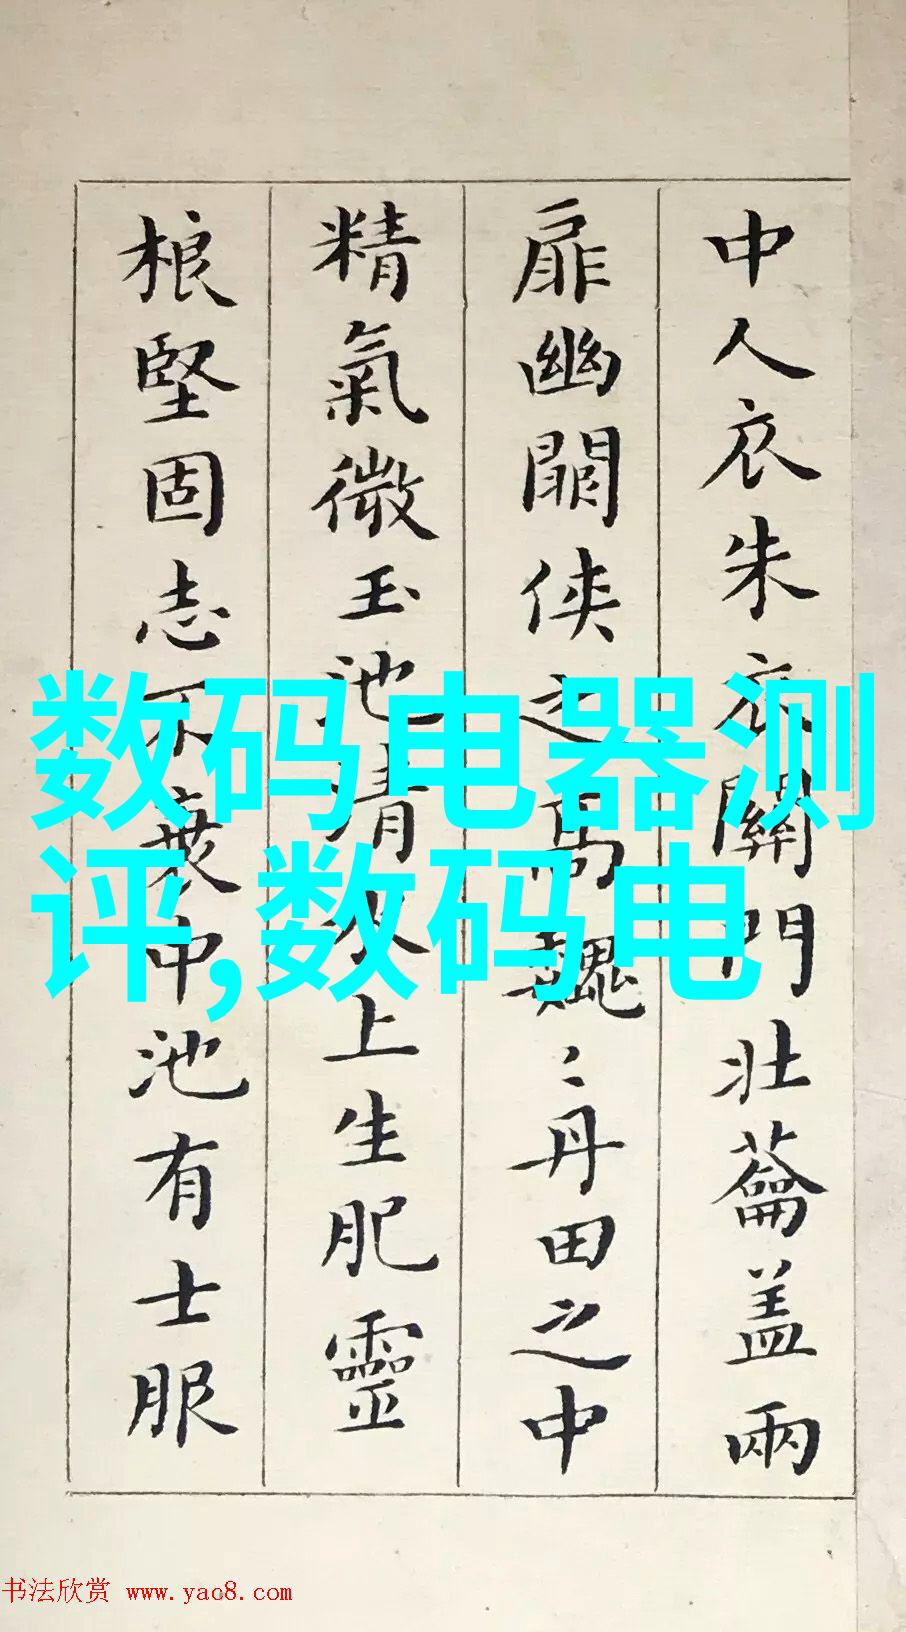 中人衣朱衣關門壯蘥盖兩
扉幽闗侠之高巍〻丹田之中
精氣微玉池清水上生肥靈
根堅固志不衰中池有士服
数码电器测
评,数码电
书法欣赏 www.yac8.com